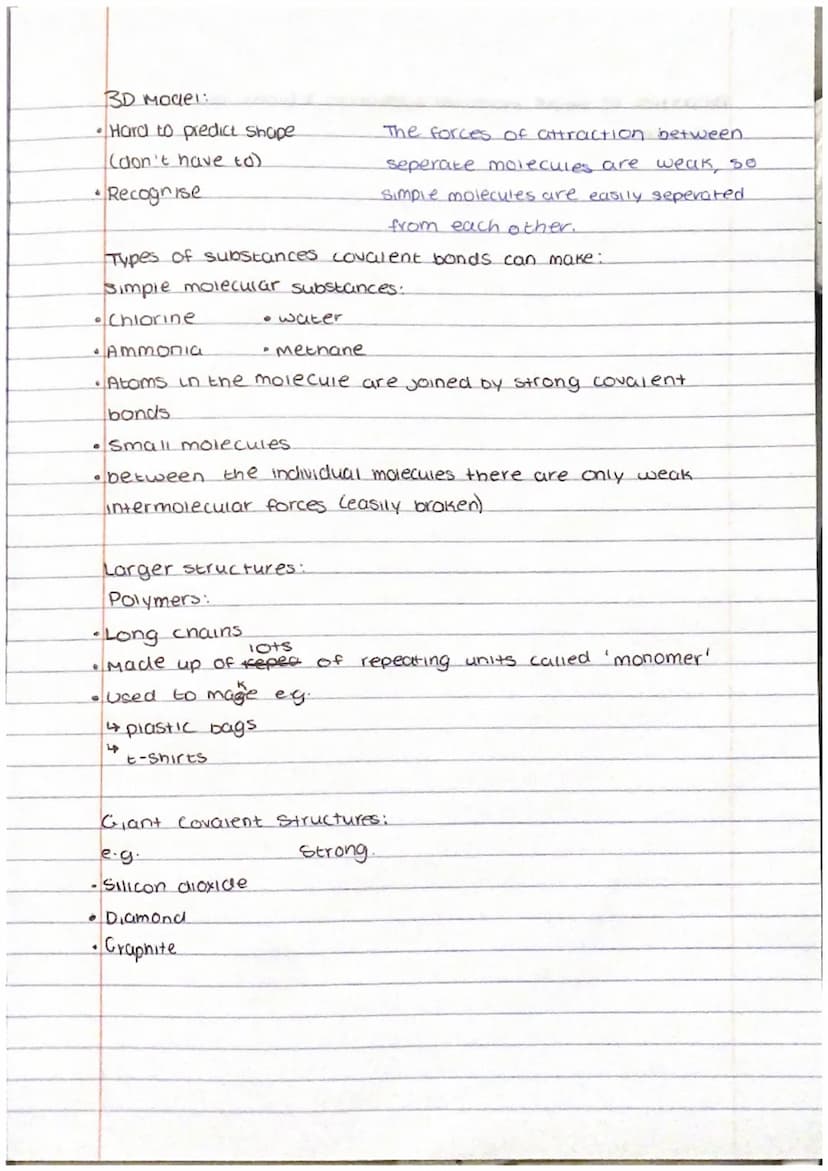 3D Model:
• Hard to predict shape
(don't have to)
• Recognise
The forces of attraction between
seperate molecules are weak, so
simple molecules are easily seperated
from each other.
Types of substances covalent bonds can make:
Simple molecular substances:
• Chlorine • water
• Ammonia • Methane
• Atoms in the molecule are joined by strong covalent
bonds
• Small molecules
• between the individual molecules there are only weak
intermolecular forces (easily broken)
Larger structures:
Polymers:
• Long chains
• Made up of lots of repeating units called 'monomer'
• Used to make e.g.
↳ plastic bags
↳ t-shirts
Giant Covalent Structures:
e.g. Strong.
• Silicon dioxide
• Diamond
• Graphite